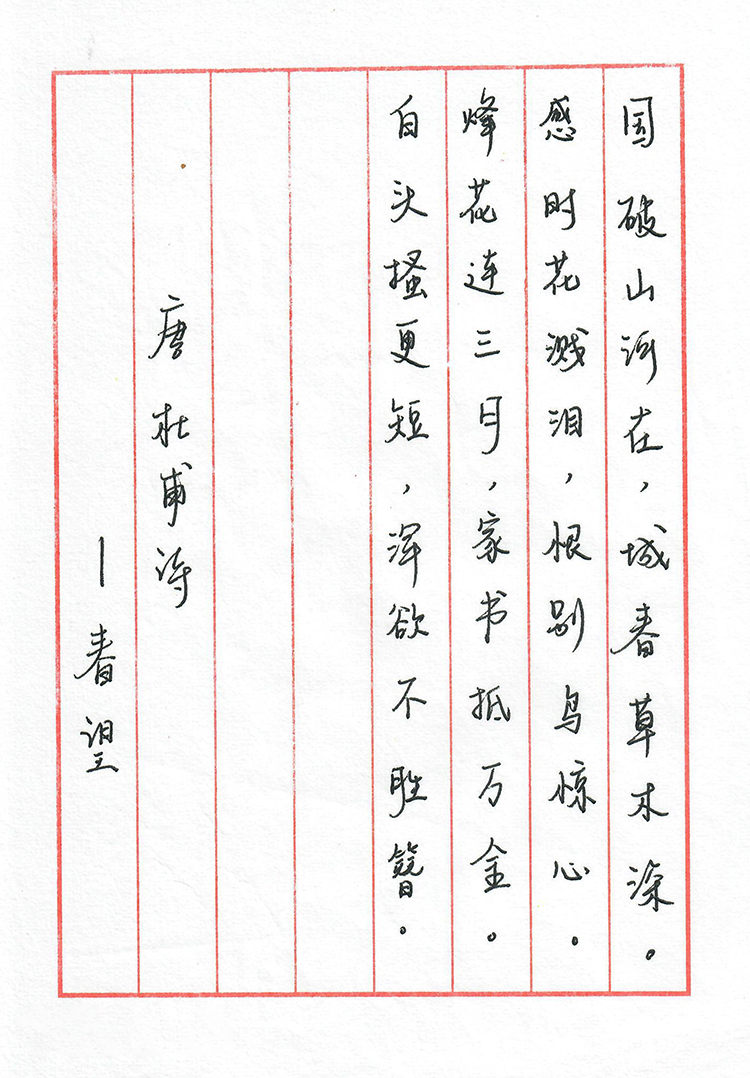 国破山河在，城春草木深。
感时花溅泪，恨别鸟惊心。
烽花连三月，家书抵万金。
白头搔更短，浑欲不胜簪。
唐杜甫诗
—春望